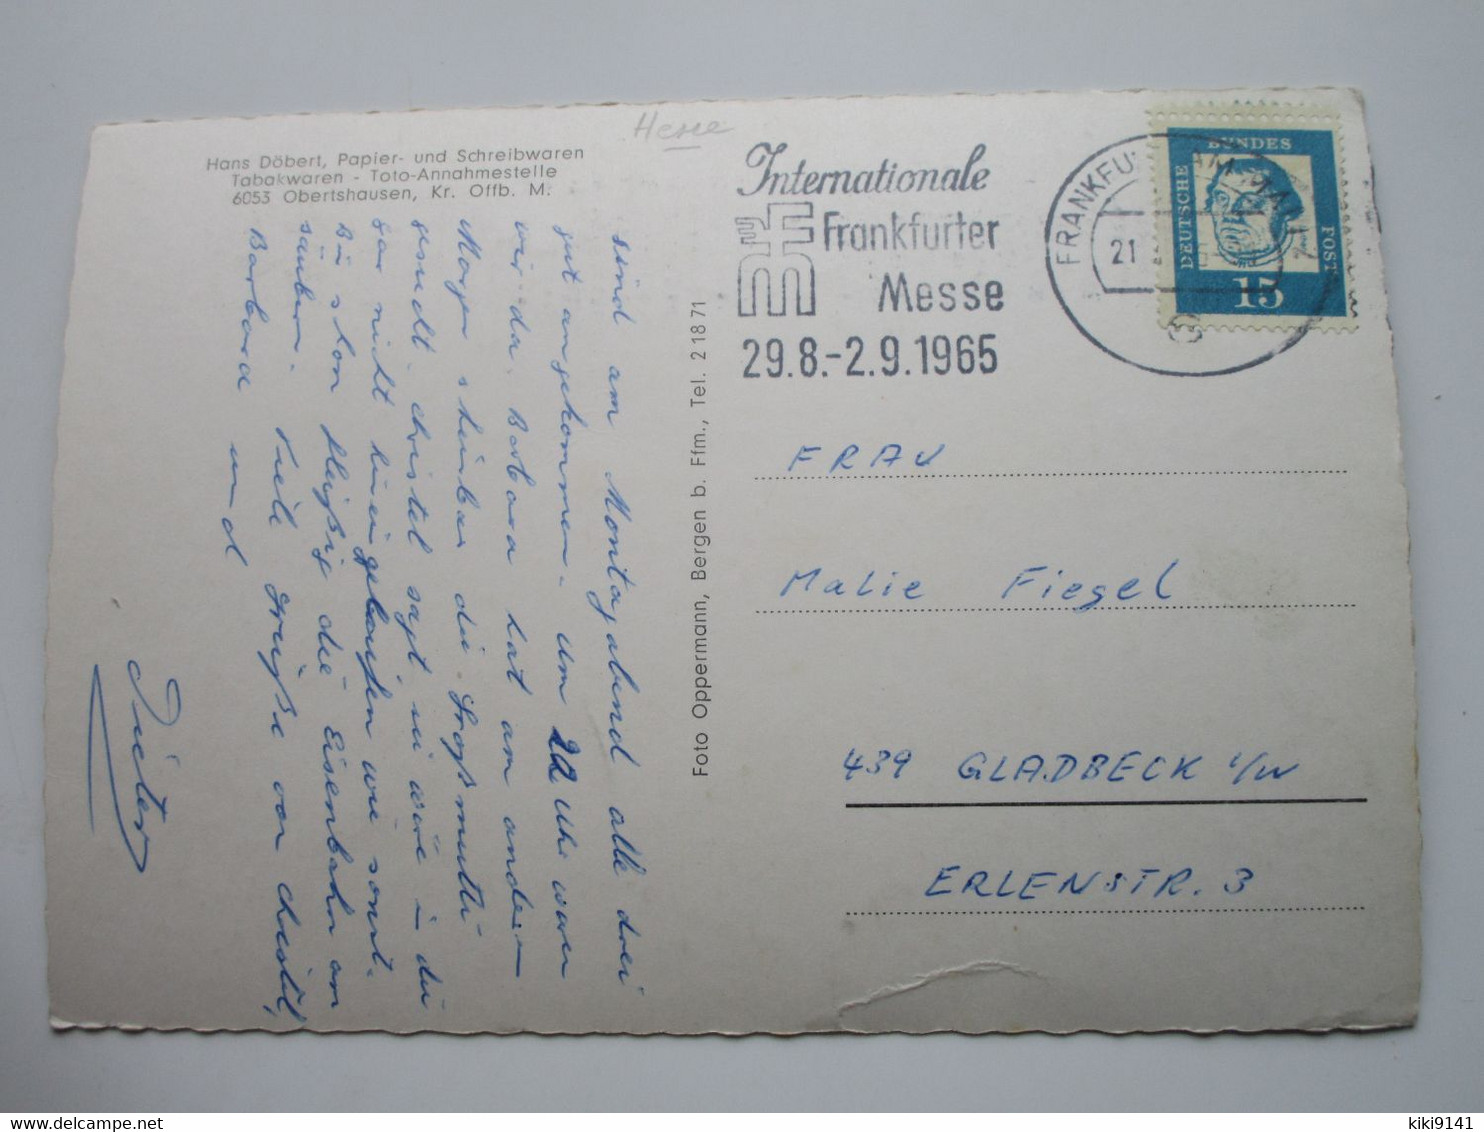 Hesse
Hans Döbert, Papier- und Schreibwaren
Tabakwaren - Toto-Annahmestelle
6053 Obertshausen, Kr. Offb. M.
sind am Montagabend alle drei
gut angekommen. um 22 Uhr waren
wir da. Barbara hat am anderen
Morgen die Großmutti
gesucht. Christel sagt sie wäre in die
gar nicht hineingelaufen wie sonst.
Bin schon fleißig die Eisenbahn am
säubern. Viele Grüße von Christel,
Barbara und
Dieter
Foto Oppermann, Bergen b. Ffm., Tel. 2 18 71
Internationale
Frankfurter
Messe
29.8.-2.9.1965
FRANKFURT AM MAIN
21
DEUTSCHE
BUNDES
POST
15
FRAU
Malie Fiegel
439 GLADBECK i/W
ERLENSTR. 3
delcampe.net
kiki9141